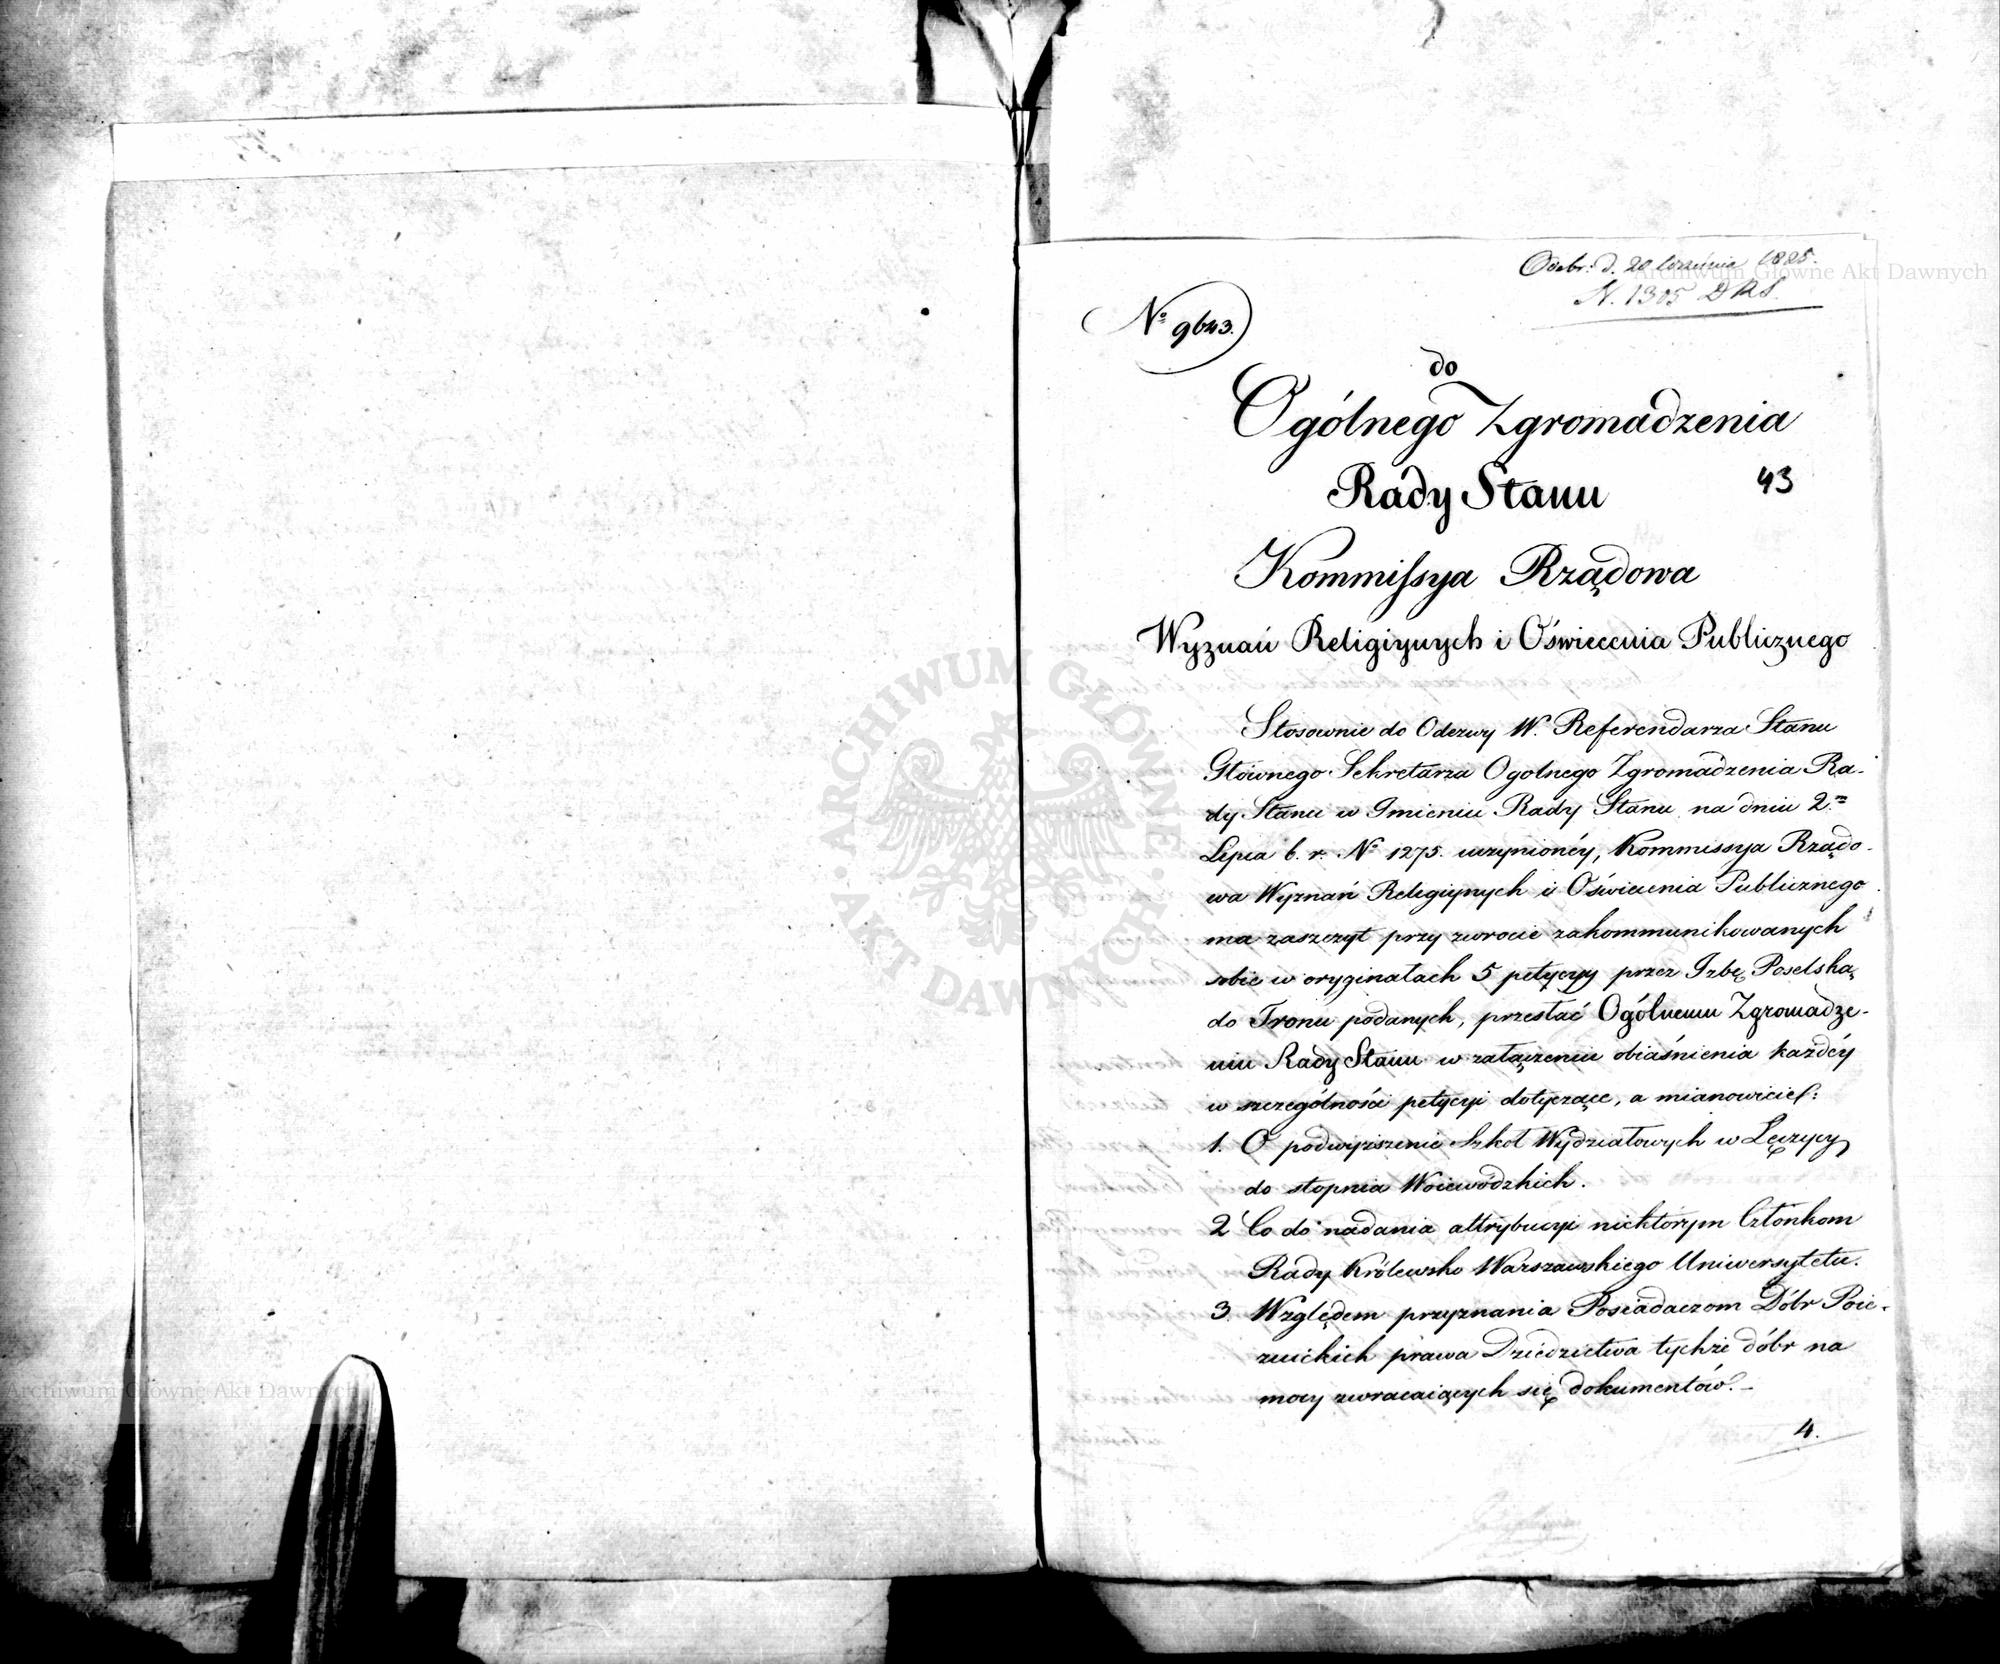 Odebr: d. 20 Września 1825.
N. 1305 DRS.
Nº 9643.
do
Ogólnego Zgromadzenia
Rady Stanu
43
Kommissya Rządowa
Wyznań Religiynych i Oświecenia Publicznego
Stosownie do Odezwy W. Referendarza Stanu
Głównego Sekretarza Ogolnego Zgromadzenia Ra-
dy Stanu w Imieniu Rady Stanu na dniu 2.
Lipca b. r. Nº 1275. uczynionéy, Kommissya Rządo-
wa Wyznań Religiynych i Oświecenia Publicznego
ma zaszczyt przy zwrocie zakommunikowanych
sobie w oryginałach 5 petycyy przez Izbę Poselską
do Tronu podanych, przesłać Ogólnemu Zgromadze-
niu Rady Stanu w załączeniu obiaśnienia każdéy
w szczególności petycyi dotyczące, a mianowicie:
1. O podwyższenie Szkół Wydziałowych w Łęczycy
do stopnia Woiewódzkich.
2 Co do nadania attrybucyi niektórym Członkom
Rady Królewsko Warszawskiego Uniwersytetu.
3. Względem przyznania Posiadaczom Dóbr Poie-
zuickich prawa Dziedzictwa tychże dóbr na
mocy zwracaiących się dokumentów.-
4.
ARCHIWUM GŁÓWNE AKT DAWNYCH
Archiwum Główne Akt Dawnych
Archiwum Główne Akt Dawnych